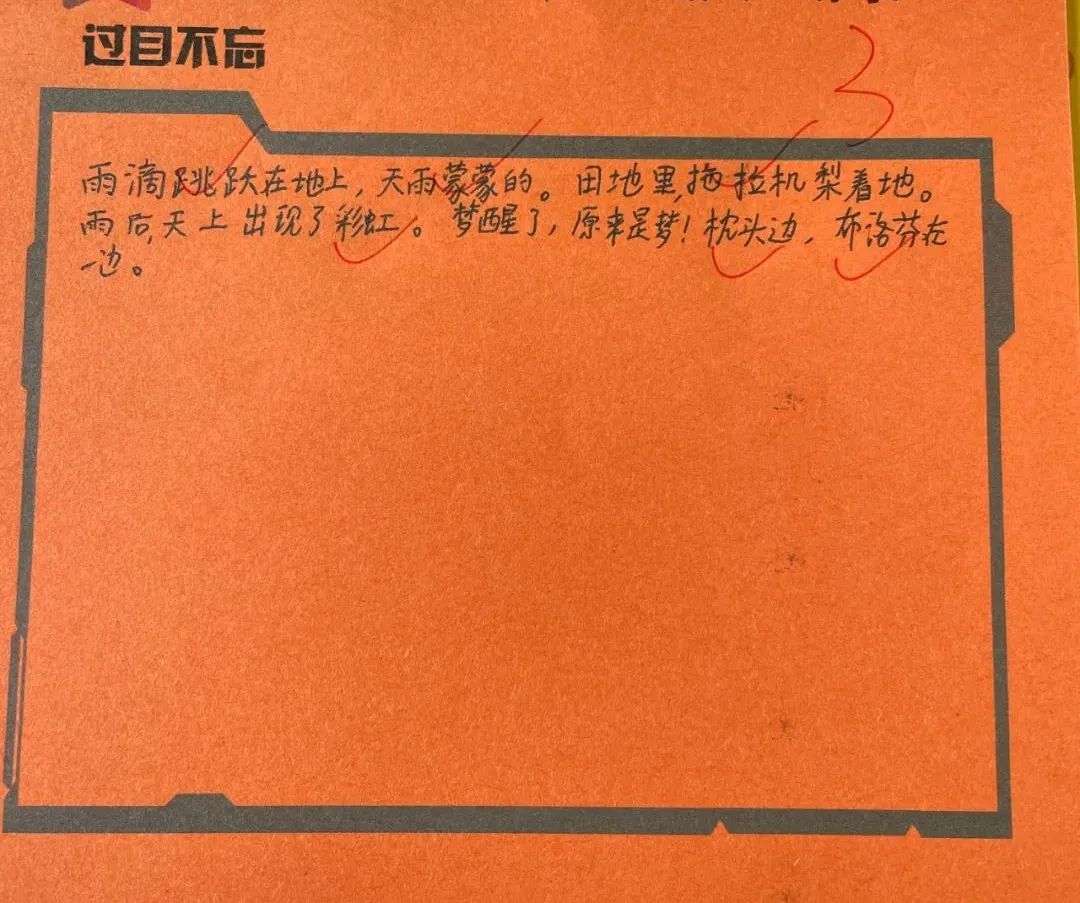 过目不忘
3
雨滴跳跃在地上，天雨蒙蒙的。田地里，拖拉机梨着地。
雨后，天上出现了彩虹。梦醒了，原来是梦！枕头边，布洛芬在
一边。